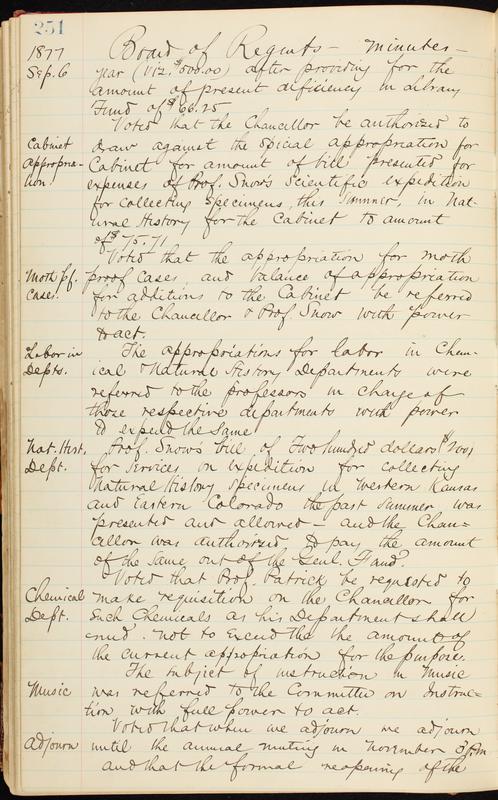 251
1877 Board of Regents - Minutes -
Sep. 6 year (viz. $500.00) after providing for the
amount of present dificiency in Library
Fund of $66.25
Voted that the Chancellor be authorized to
Cabinet draw against the special appropriation for
appropria- Cabinet for amount of bill presented for
tion! expenses of Prof. Snow's Scientific expedition
for collecting specimens, this summer, in Nat-
ural History for the Cabinet to amount
of $75.71
Voted that the appropriation for moth
Moth pf. proof cases and balance of appropriation
cases. for additions to the Cabinet be referred
to the Chancellor & Prof Snow with power
to act.
Labor in The appropriations for labor in Chem-
Depts. ical & Natural History Departments were
referred to the professors in charge of
those respective departments with power
to expend the same
Nat. Hist. Prof. Snow's bill of Two hundred dollars $200
Dept. for services on expedition for collecting
Natural History specimens in Western Kansas
and Eastern Colorado the past summer was
presented and allowed - and the Chan-
cellor was authorized to pay the amount
of the same out of the Genl. Fund.
Voted that Prof. Patrick be requested to
Chemical make requisition on the Chancellor for
Dept. such Chemicals as his Department shall
need. not to exceed the the amount of
the current appropriation for the purpose.
The subject of instruction in Music
Music was referred to the Committee on Instruc-
tion with full power to act.
Voted that when we adjourn we adjourn
Adjourn until the annual meeting in November 3 p.m
and that the formal reopening of the